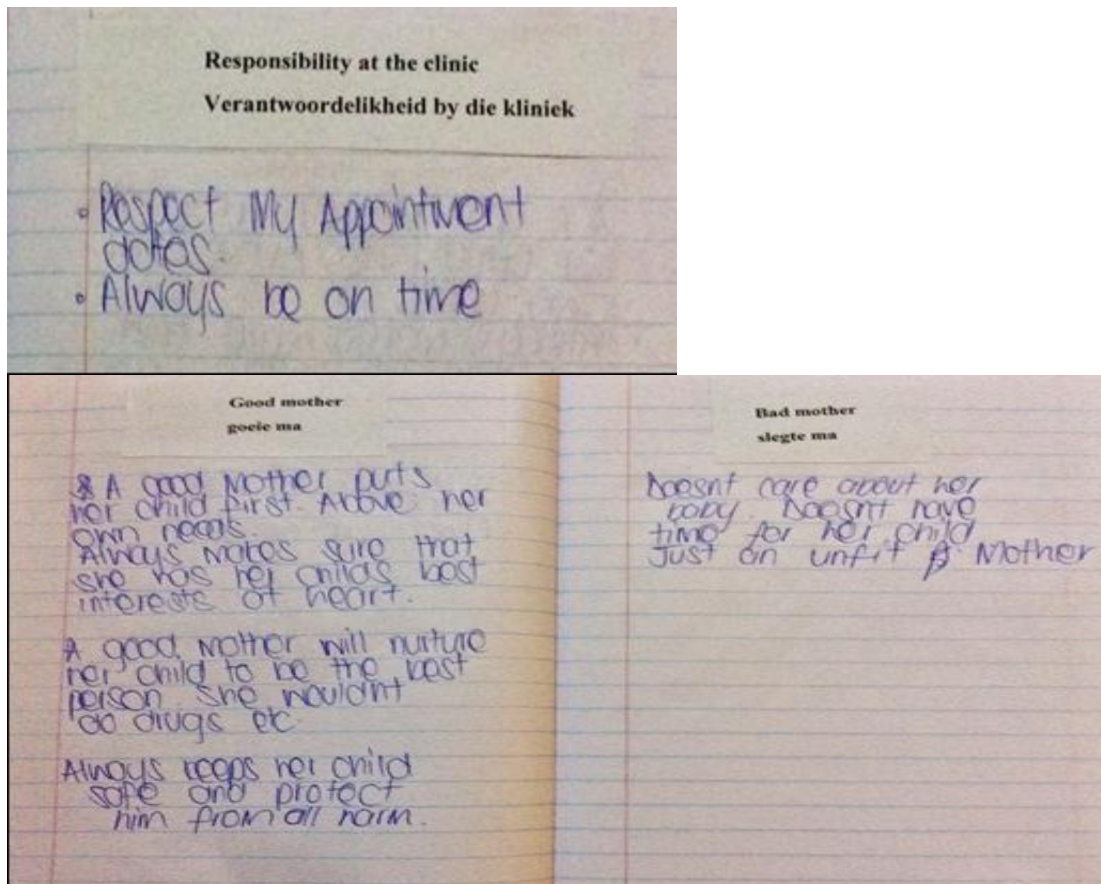 Responsibility at the clinic
Verantwoordelikheid by die kliniek
Respect My Appointment
dates.
Always be on time
Good mother
goeie ma
A good Mother puts
her child first. Above her
own needs.
Always makes sure that
she has her childs best
interests at heart.
A good Mother will nurture
her child to be the best
person. She wouldn't
do drugs etc
Always keeps her child
safe and protect
him from all harm.
Bad mother
slegte ma
Doesnt care about her
baby. Doesnt have
time for her child
Just an unfit Mother